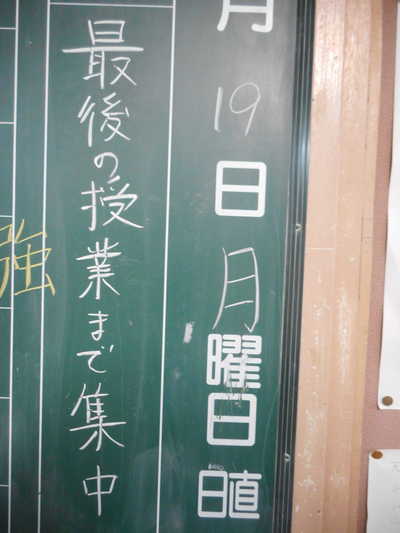 月19日月曜日
日直
最後の授業まで集中
強